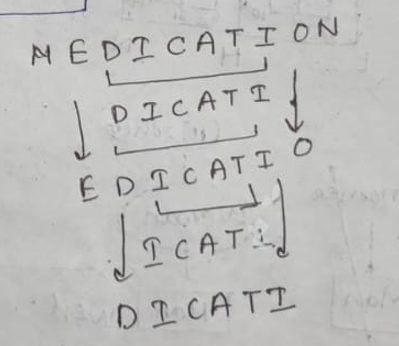 MEDICATION
DICATI
EDICATIO
ICATI
DICATI